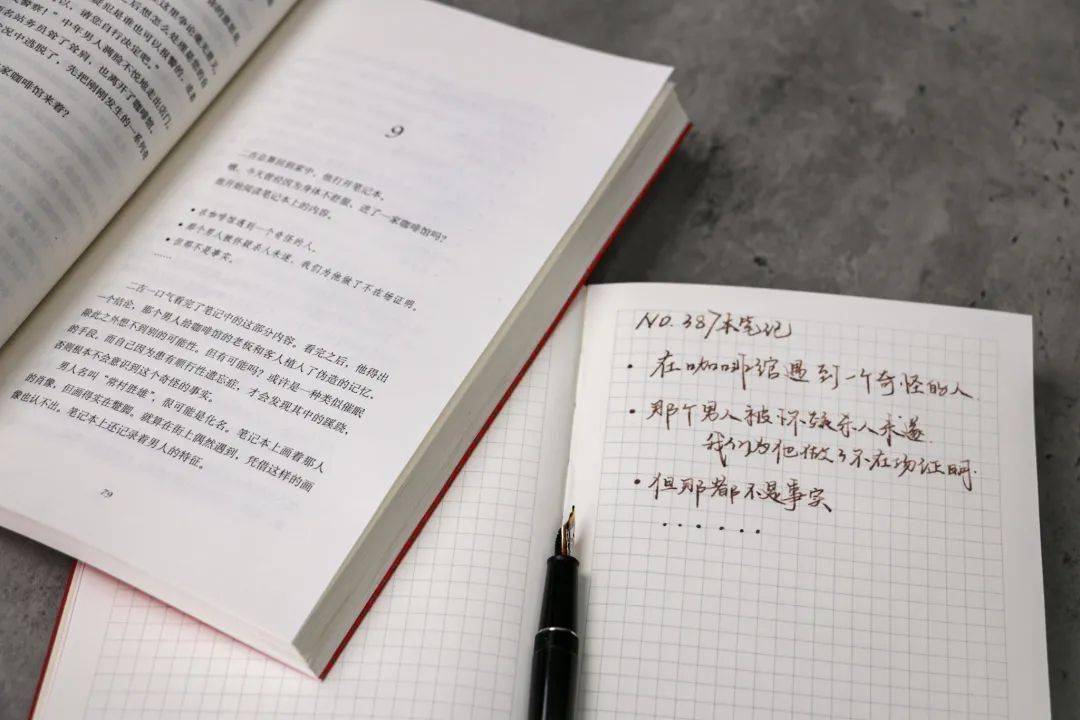 9
二吉总算回到家中，他打开笔记本。
噢，今天曾经因为身体不舒服，进了一家咖啡馆吗？
他开始阅读笔记本上的内容。
• 在咖啡馆遇到一个奇怪的人。
• 那个男人被怀疑杀人未遂，我们为他做了不在场证明。
• 但那不是事实。
……
二吉一口气看完了笔记中的这部分内容。看完之后，他得出
一个结论，那个男人给咖啡馆的老板和客人植入了伪造的记忆，
除此之外想不到别的可能性。但有可能吗？或许是一种类似催眠
的手段，而自己因为患有顺行性遗忘症，才会发现其中的蹊跷，
否则根本不会意识到这个奇怪的事实。
男人名叫“常村胜雄”，很可能是化名。笔记本上画着那人
的肖像，但画得实在蹩脚，就算在街上偶然遇到，凭借这样的画
像也认不出。笔记本上还记录着男人的特征。
79
警察！”中年男人满脸不悦地走出店门。
名站务员耸了耸肩，也离开了咖啡馆。
况中逃脱了，先把刚刚发生的一系列奇
家咖啡馆来着？
NO.387本笔记
• 在咖啡馆遇到一个奇怪的人
• 那个男人被怀疑杀人未遂.
我们为他做了不在场证明.
• 但那都不是事实
······